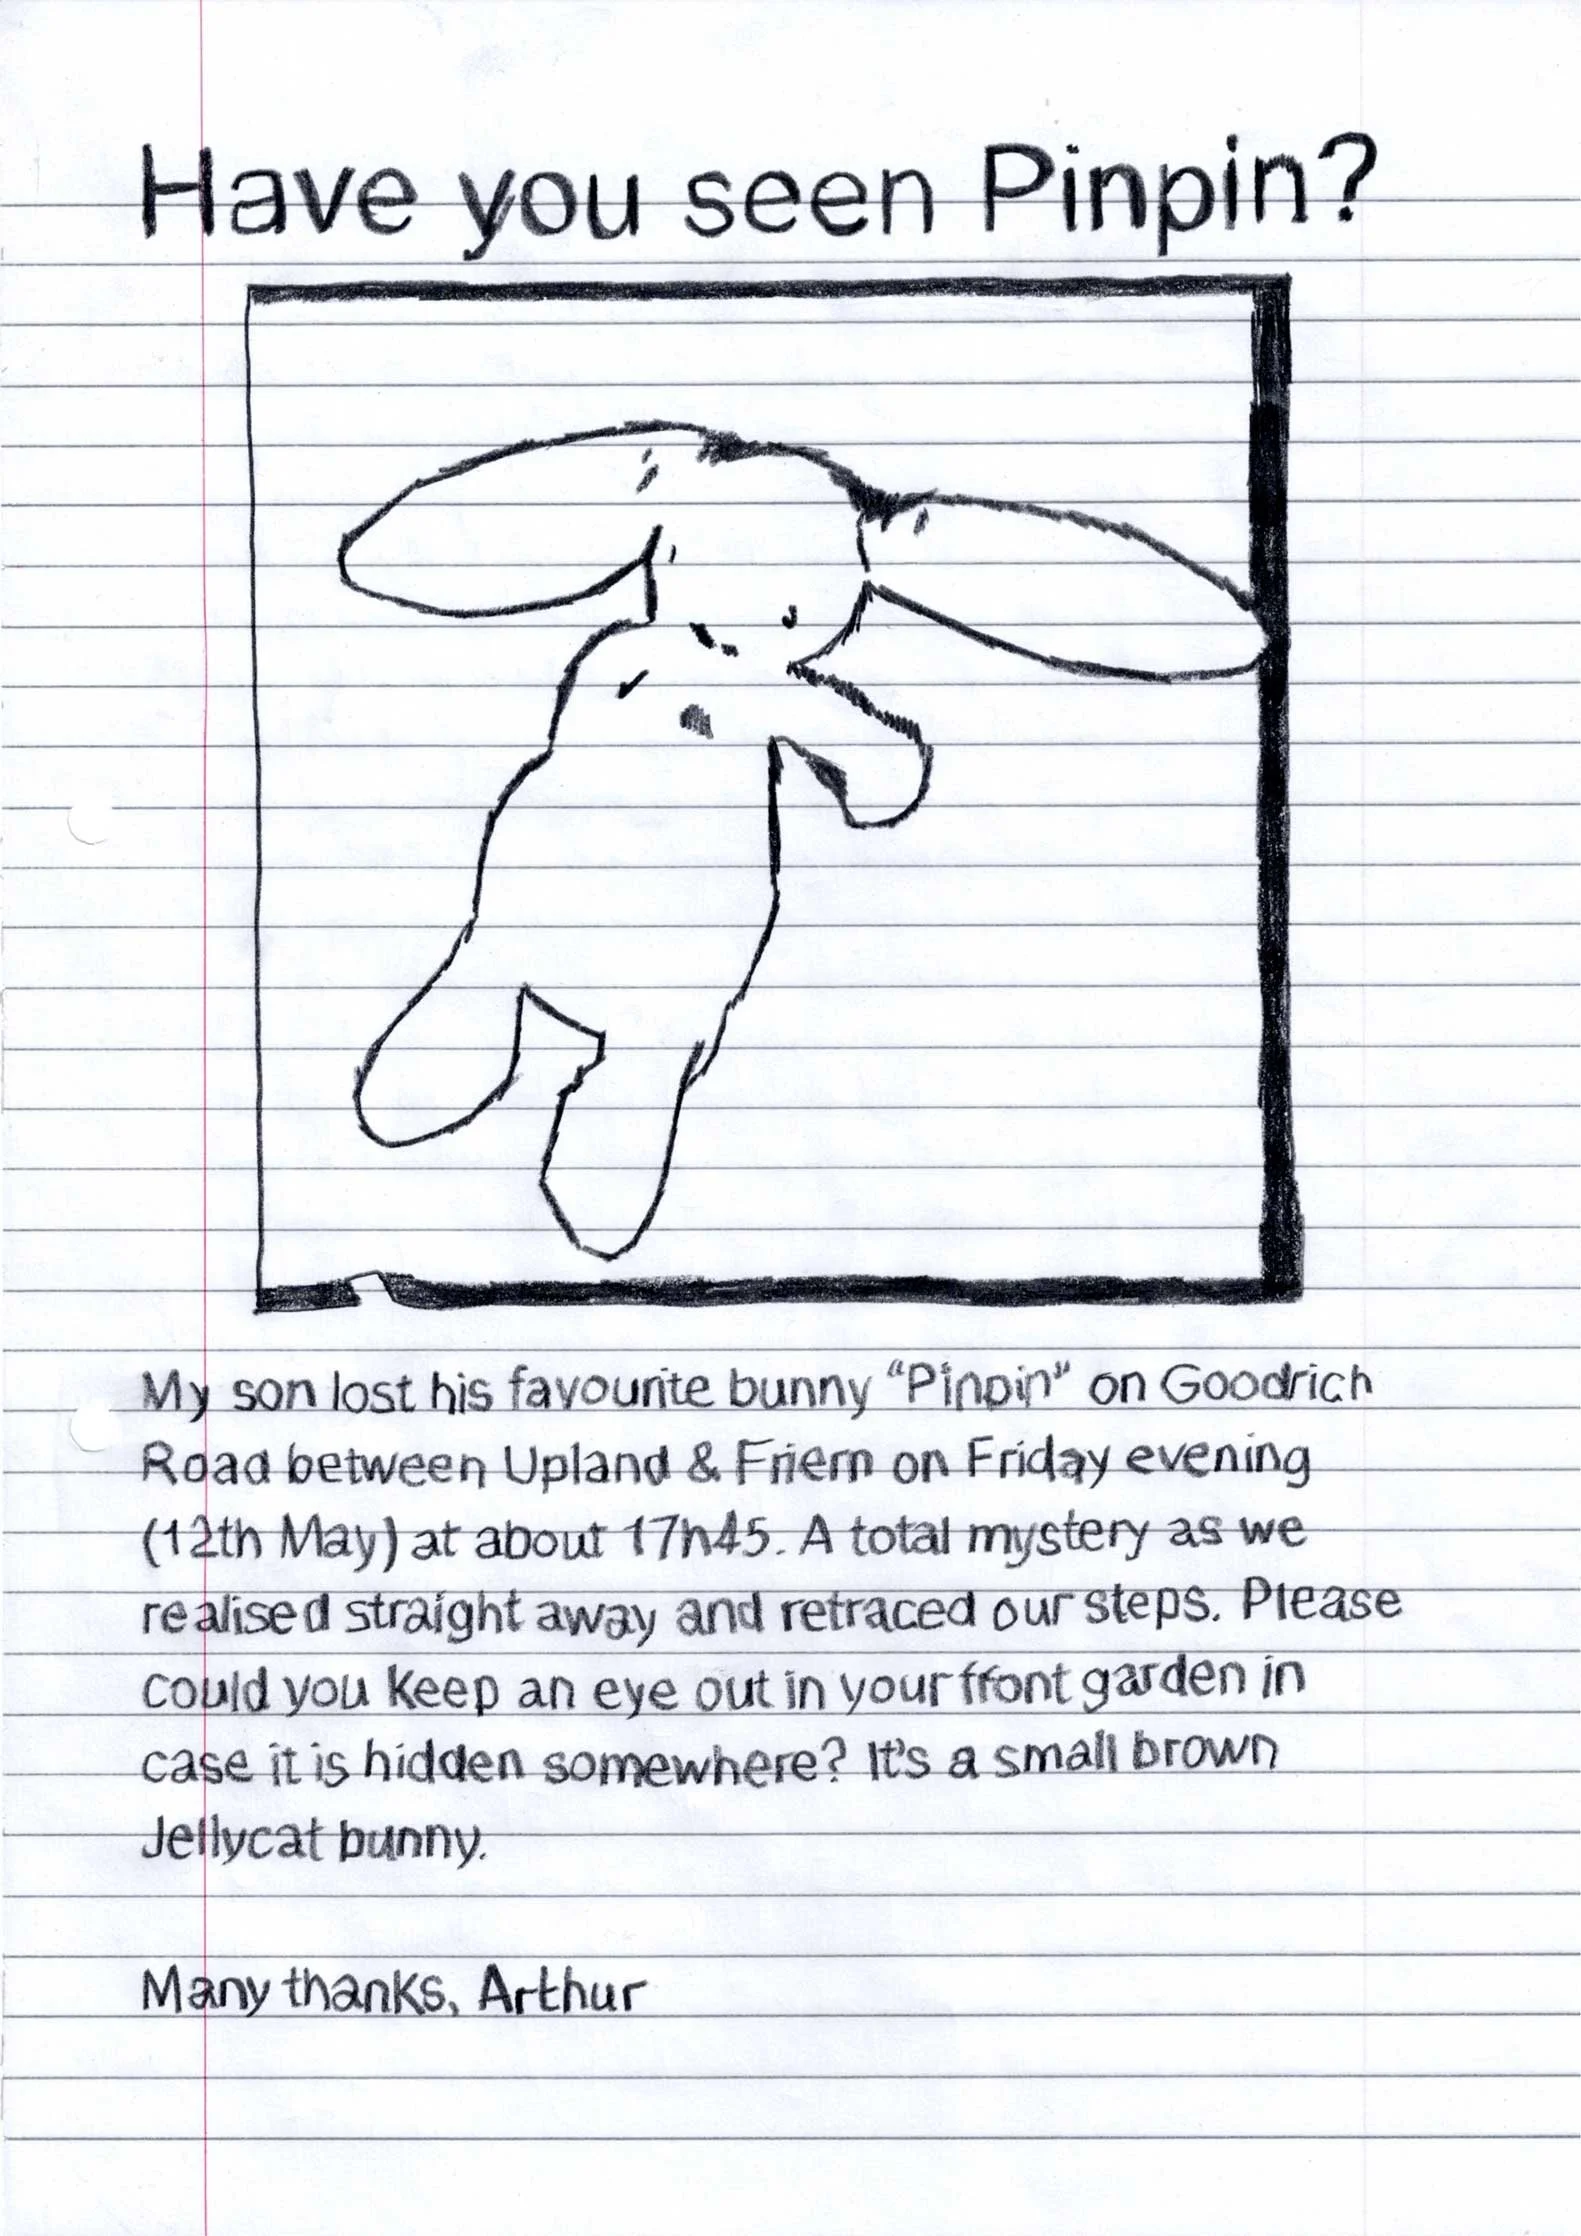 Have you seen Pinpin?
My son lost his favourite bunny "Pinpin" on Goodrich
Road between Upland & Friern on Friday evening
(12th May) at about 17h45. A total mystery as we
realised straight away and retraced our steps. Please
could you keep an eye out in your front garden in
case it is hidden somewhere? It's a small brown
Jellycat bunny.
Many thanks, Arthur